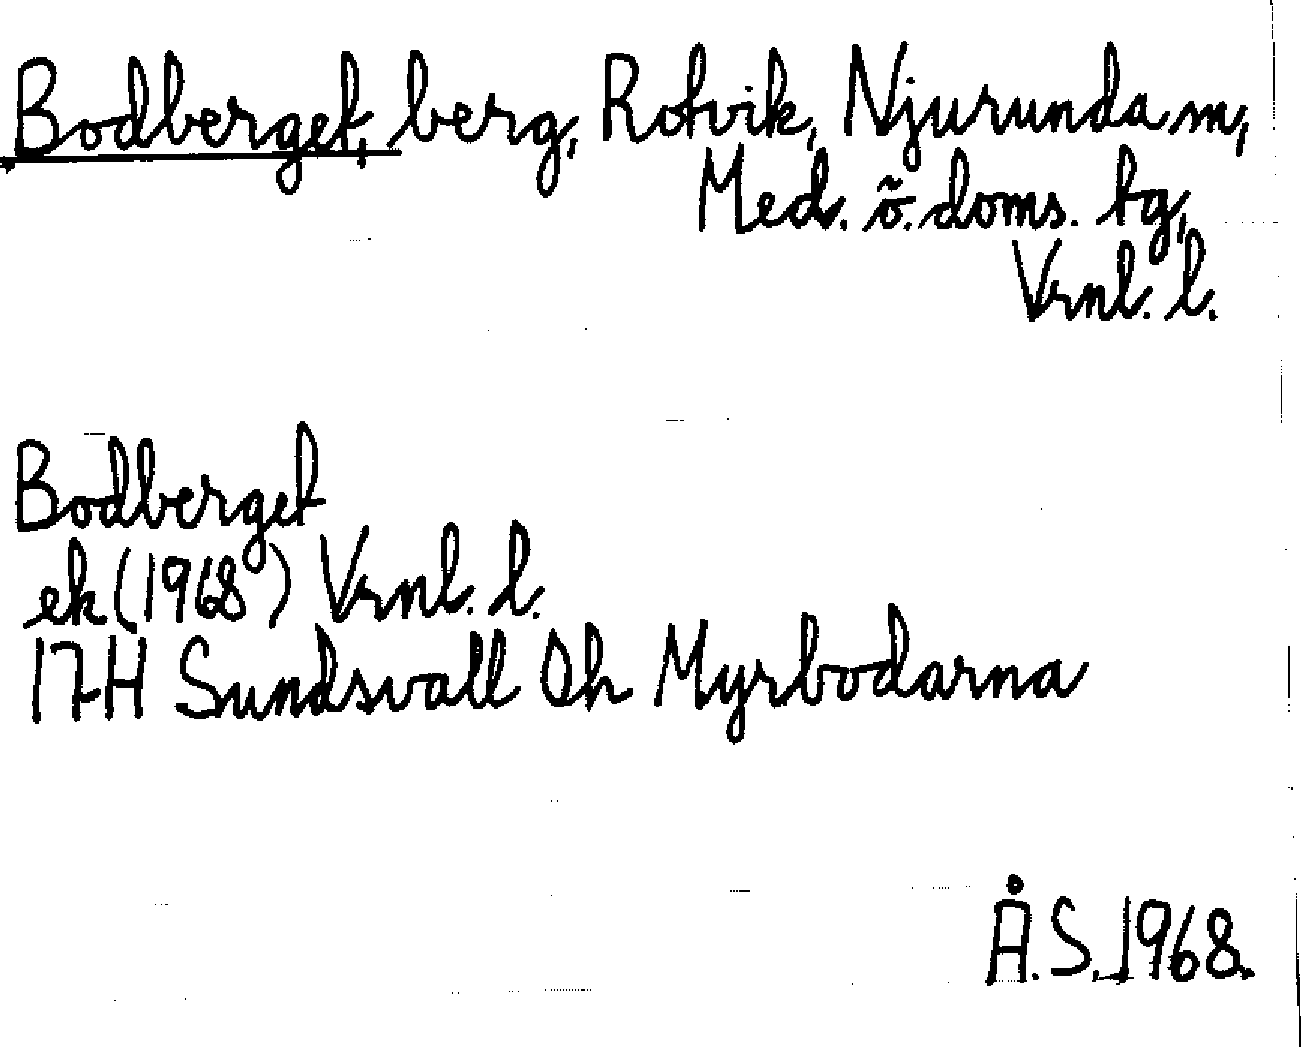 Bodberget, berg, Rotvik, Njurunda sn,
Med. ö. doms. tg,
Vrnl. l.
Bodberget
ek (1968) Vrnl. l.
17H Sundsvall Oh Myrbodarna
Å.S. 1968.